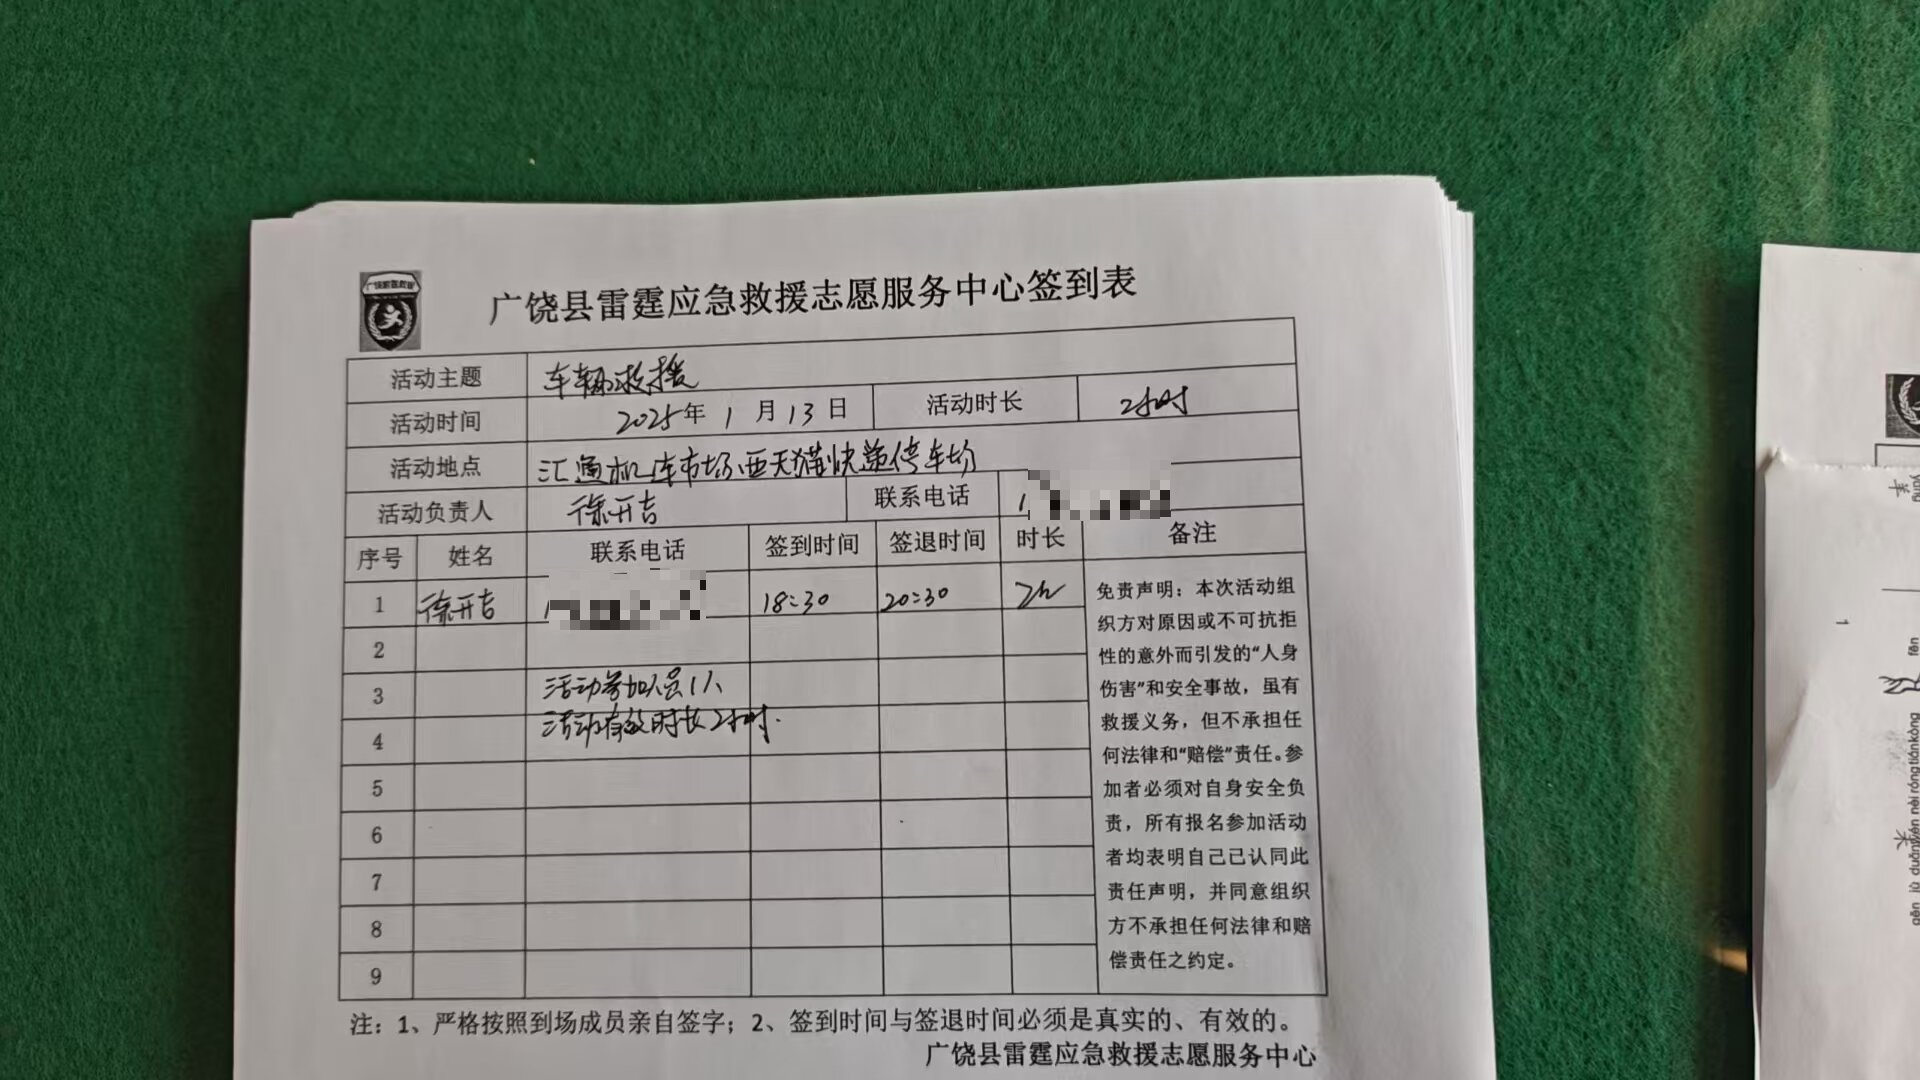 广饶县雷霆应急救援志愿服务中心签到表
活动主题 车辆救援
活动时间 2025年 1 月 13 日 活动时长 2小时
活动地点 汇通机车市场西天猫快递停车场
活动负责人 徐开吉 联系电话 1
序号 姓名 联系电话 签到时间 签退时间 时长 备注
1 徐开吉 1 18:30 20:30 2h
2
3 活动参加人员1人
4 活动有效时长2小时.
5
6
7
8
9
免责声明：本次活动组
织方对原因或不可抗拒
性的意外而引发的“人身
伤害”和安全事故，虽有
救援义务，但不承担任
何法律和“赔偿”责任。参
加者必须对自身安全负
责，所有报名参加活动
者均表明自己已认同此
责任声明，并同意组织
方不承担任何法律和赔
偿责任之约定。
注：1、严格按照到场成员亲自签字；2、签到时间与签退时间必须是真实的、有效的。
广饶县雷霆应急救援志愿服务中心
yáng
羊
1
fēn
米